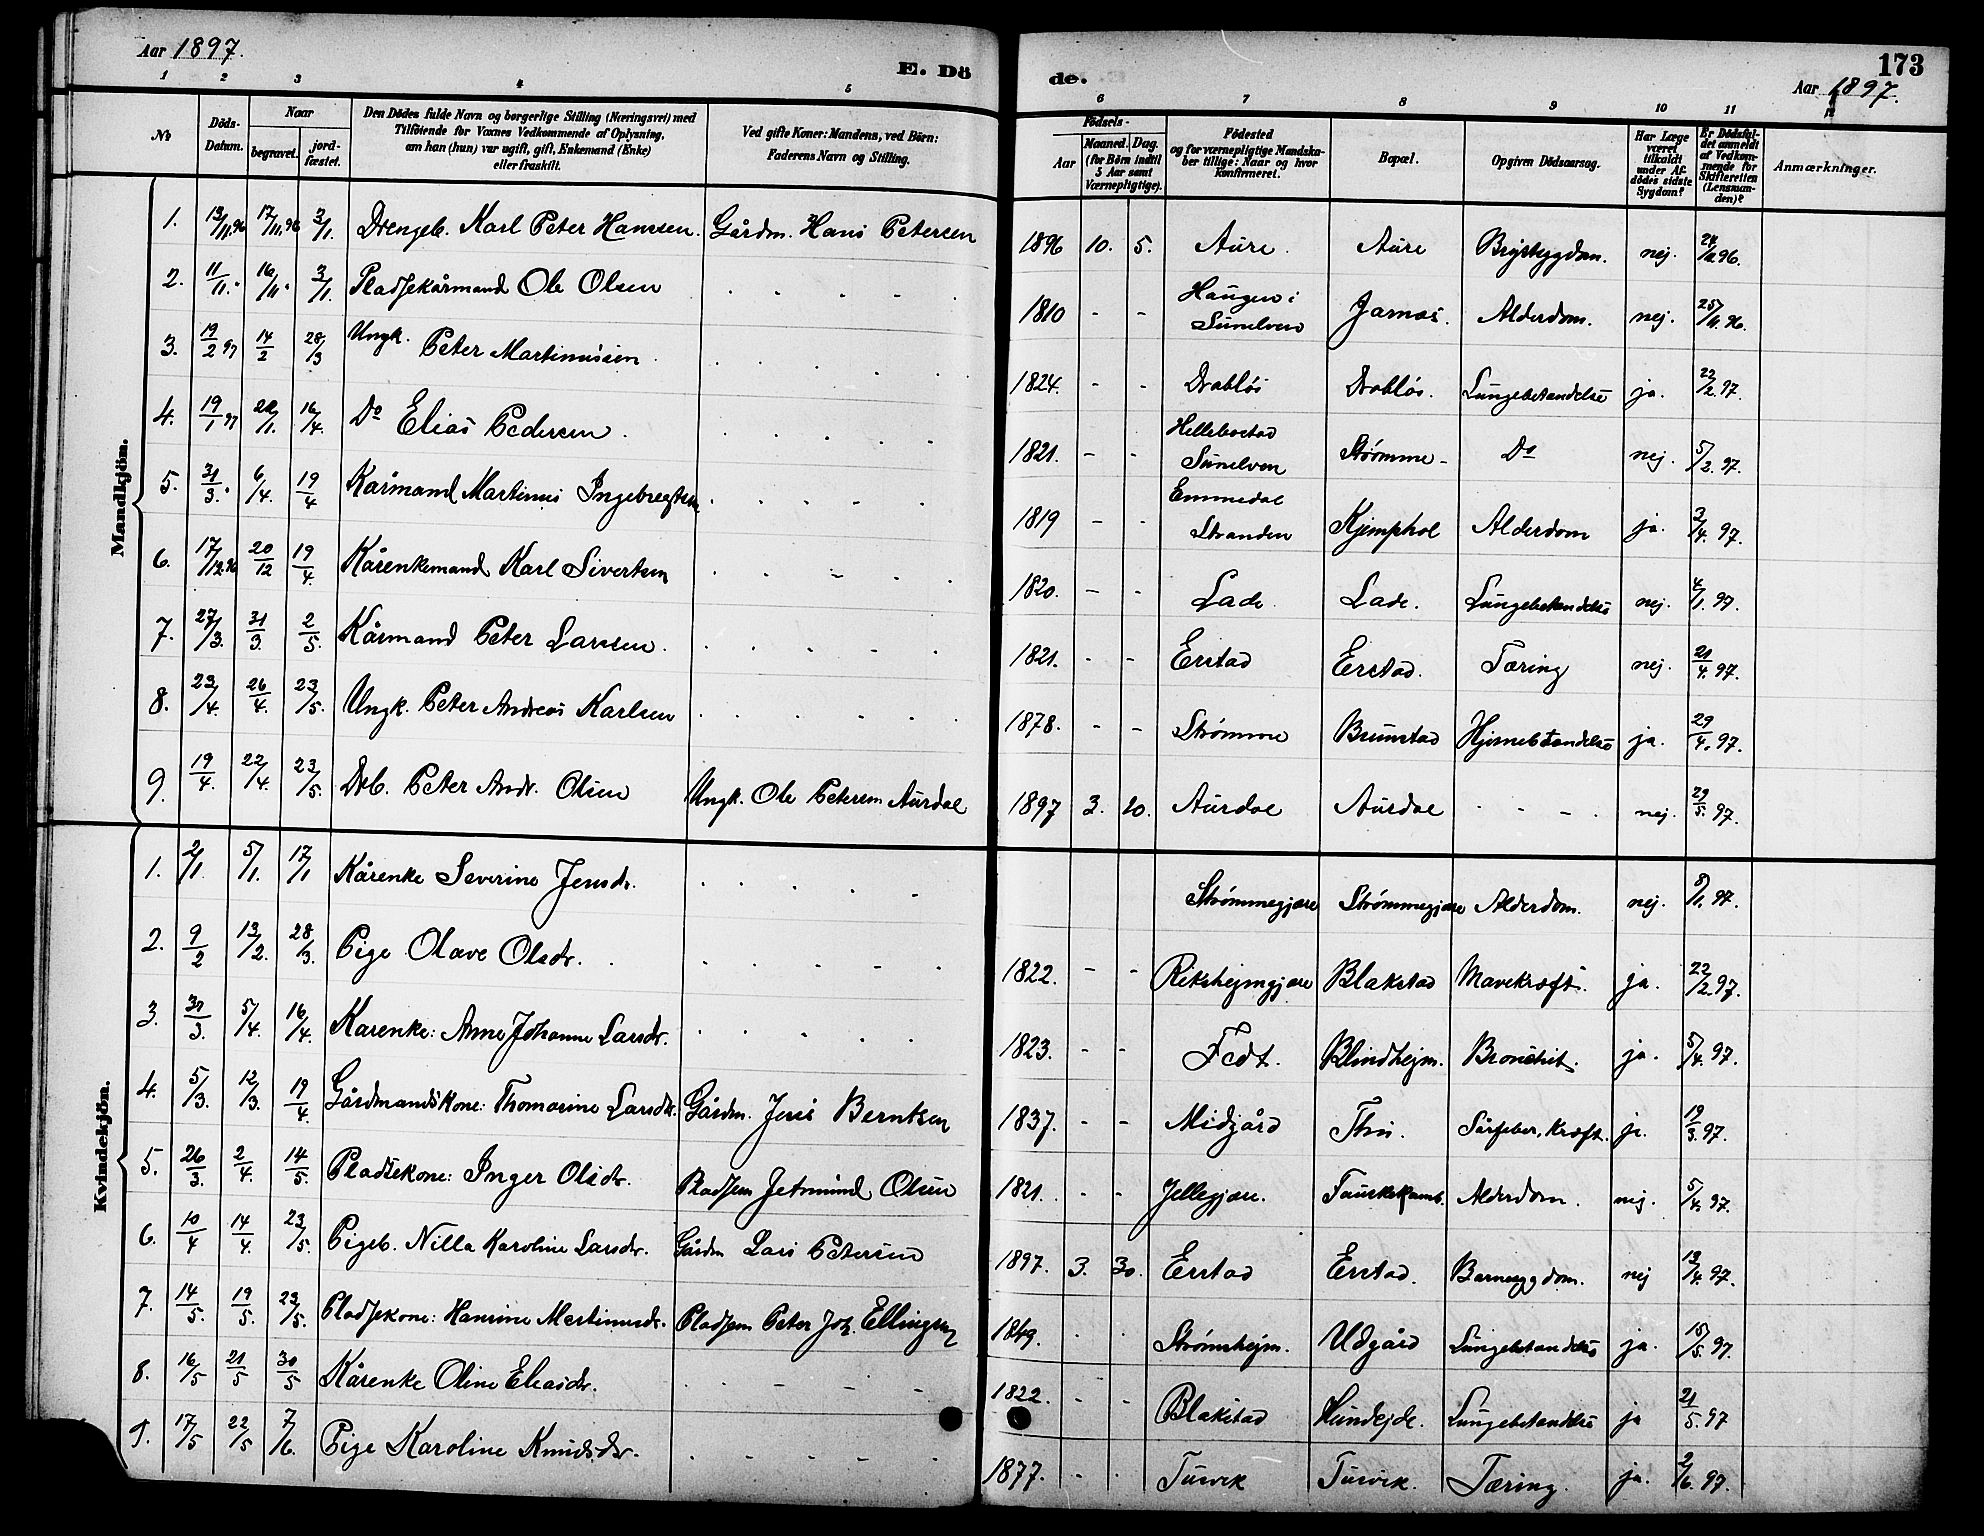 Aar 1897.
E. Dö
de.
173
Aar 1897.
1 2 3 4 5
6 7 8 9 10 11 12
No
Döds-Datum.
Naar
begravet.
jord-fæstet.
Den Dödes fulde Navn og borgerlige Stilling (Næringsvei) med
Tilföiende for Voxnes Vedkommende af Oplysning,
om han (hun) var ugift, gift, Enkemand (Enke)
eller fraskilt.
Ved gifte Koner: Mandens, ved Börn:
Faderens Navn og Stilling.
Födsels-
Aar
Maaned. Dag.
(for Börn indtil
5 Aar samt
Værnepligtige).
Födested
og for værnepligtige Mandska-
ber tillige: Naar og hvor
Konfirmeret.
Bopæl.
Opgiven Dödsaarsag.
Har Læge
været
tilkaldt
under Af-
dödes sidste
Sygdom?
Er Dödsfal-
det anmeldt
af Vedkom-
mende for
Skifteretten
(Lensman-
den)?
Anmærkninger.
Mandkjön.
1. 13/11.96 17/11.96 3/1. Drengeb. Karl Peter Hansen. Gårdm. Hans Petersen 1896 10. 5. Aure. Aure Brystsygdom. nej.
2. 11/11." 16/11" 3/1. Pladsekårmand Ole Olsen 1810 - - Haugen i Sunelven Jarnes. Alderdom. nej. 25/11.96.
3. 19/2 97 14/2 28/3 Ungk. Peter Martinussen 1824. - - Drabløs Drabløs. Lungebetændelse ja. 22/2.97.
4. 19/1 97 16/4. Do Elias Pedersen. 1821. - - Hellebostad Sunelven Strømme Do nej. 5/2.97.
5. 31/3." 6/4. 19/4 Kårmand Martinus Ingebregtsen 1819 - - Emmedal Stranden Kjemphol Alderdom ja. 3/4.97.
6. 17/12.96 20/12 19/4. Kårenkemand Karl Sivertsen 1820. - - Lade. Lade. Lungebetændelse nej. 4/1.97.
7. 27/3. 31/3. 2/5. Kårmand Peter Larsen. 1821. - - Erstad Erstad. Tæring nej. 21/4.97.
8. 23/4. 26/4. 23/5. Ungk. Peter Andreas Karlsen 1878. - - Strømme Brunstad Hjernebetændelse ja. 29/4.97.
9. 19/4. 22/4. 23/5. Drb. Peter Andr. Olsen Ungk. Ole Petersen Aurdal 1897 3. 20. Aurdal Aurdal - - nej. 29/5.97.
Kvindekjön.
1. 2/1. 5/1. 17/1 Kårenke Severine Jensdr. Strømmegjære Strømmegjære Alderdom. nej. 8/1.97.
2. 9/2 13/2. 28/3. Pige Olave Olsdr. 1822. - - Rekshejmgjære Blakstad Mavekræft. ja. 22/2.97.
3. 31/3. 5/4. 16/4. Karenke: Anne Johanne Larsdr. 1823. - - Fedt. Blindhejm. Bronchit. ja. 5/4.97.
4. 5/3. 12/3. 19/4. Gårdmandskone: Thomasine Larsdtr. Gårdm. Jens Berntsen 1837. - - Midgård Thu. ja. 19/3.97.
5. 26/3. 2/4. 14/5. Pladsekone: Inger Olsdr. Pladsem Jetmund Olsen 1821. - - Jellegjære. Alderdom. nej. 5/4.97.
6. 10/4 14/4. 23/5. Pigeb. Nilla Karoline Larsdr. Gårdm Lars Petersen 1897. 3. 30. Erstad Erstad. Barnesygdom. nej 13/4.97.
7. 14/5. 19/5. 23/5. Pladsekone: Hansine Martinusdr. Pladsem Peter Joh. Ellingsen 1849. Strømshejm. Udgård Lungebetændelse ja. 15/5.97.
8. 16/5 21/5 30/5 Kårenke Oline Eliasdr. 1822. - - Blakstad Hundejde. Lungebetændelse ja 21/5.97
9. 17/5 22/5 7/6. Pige Karoline Knudsdr. 1877. - - Tusvik Tusvik. Tæring. ja. 2/6.97.